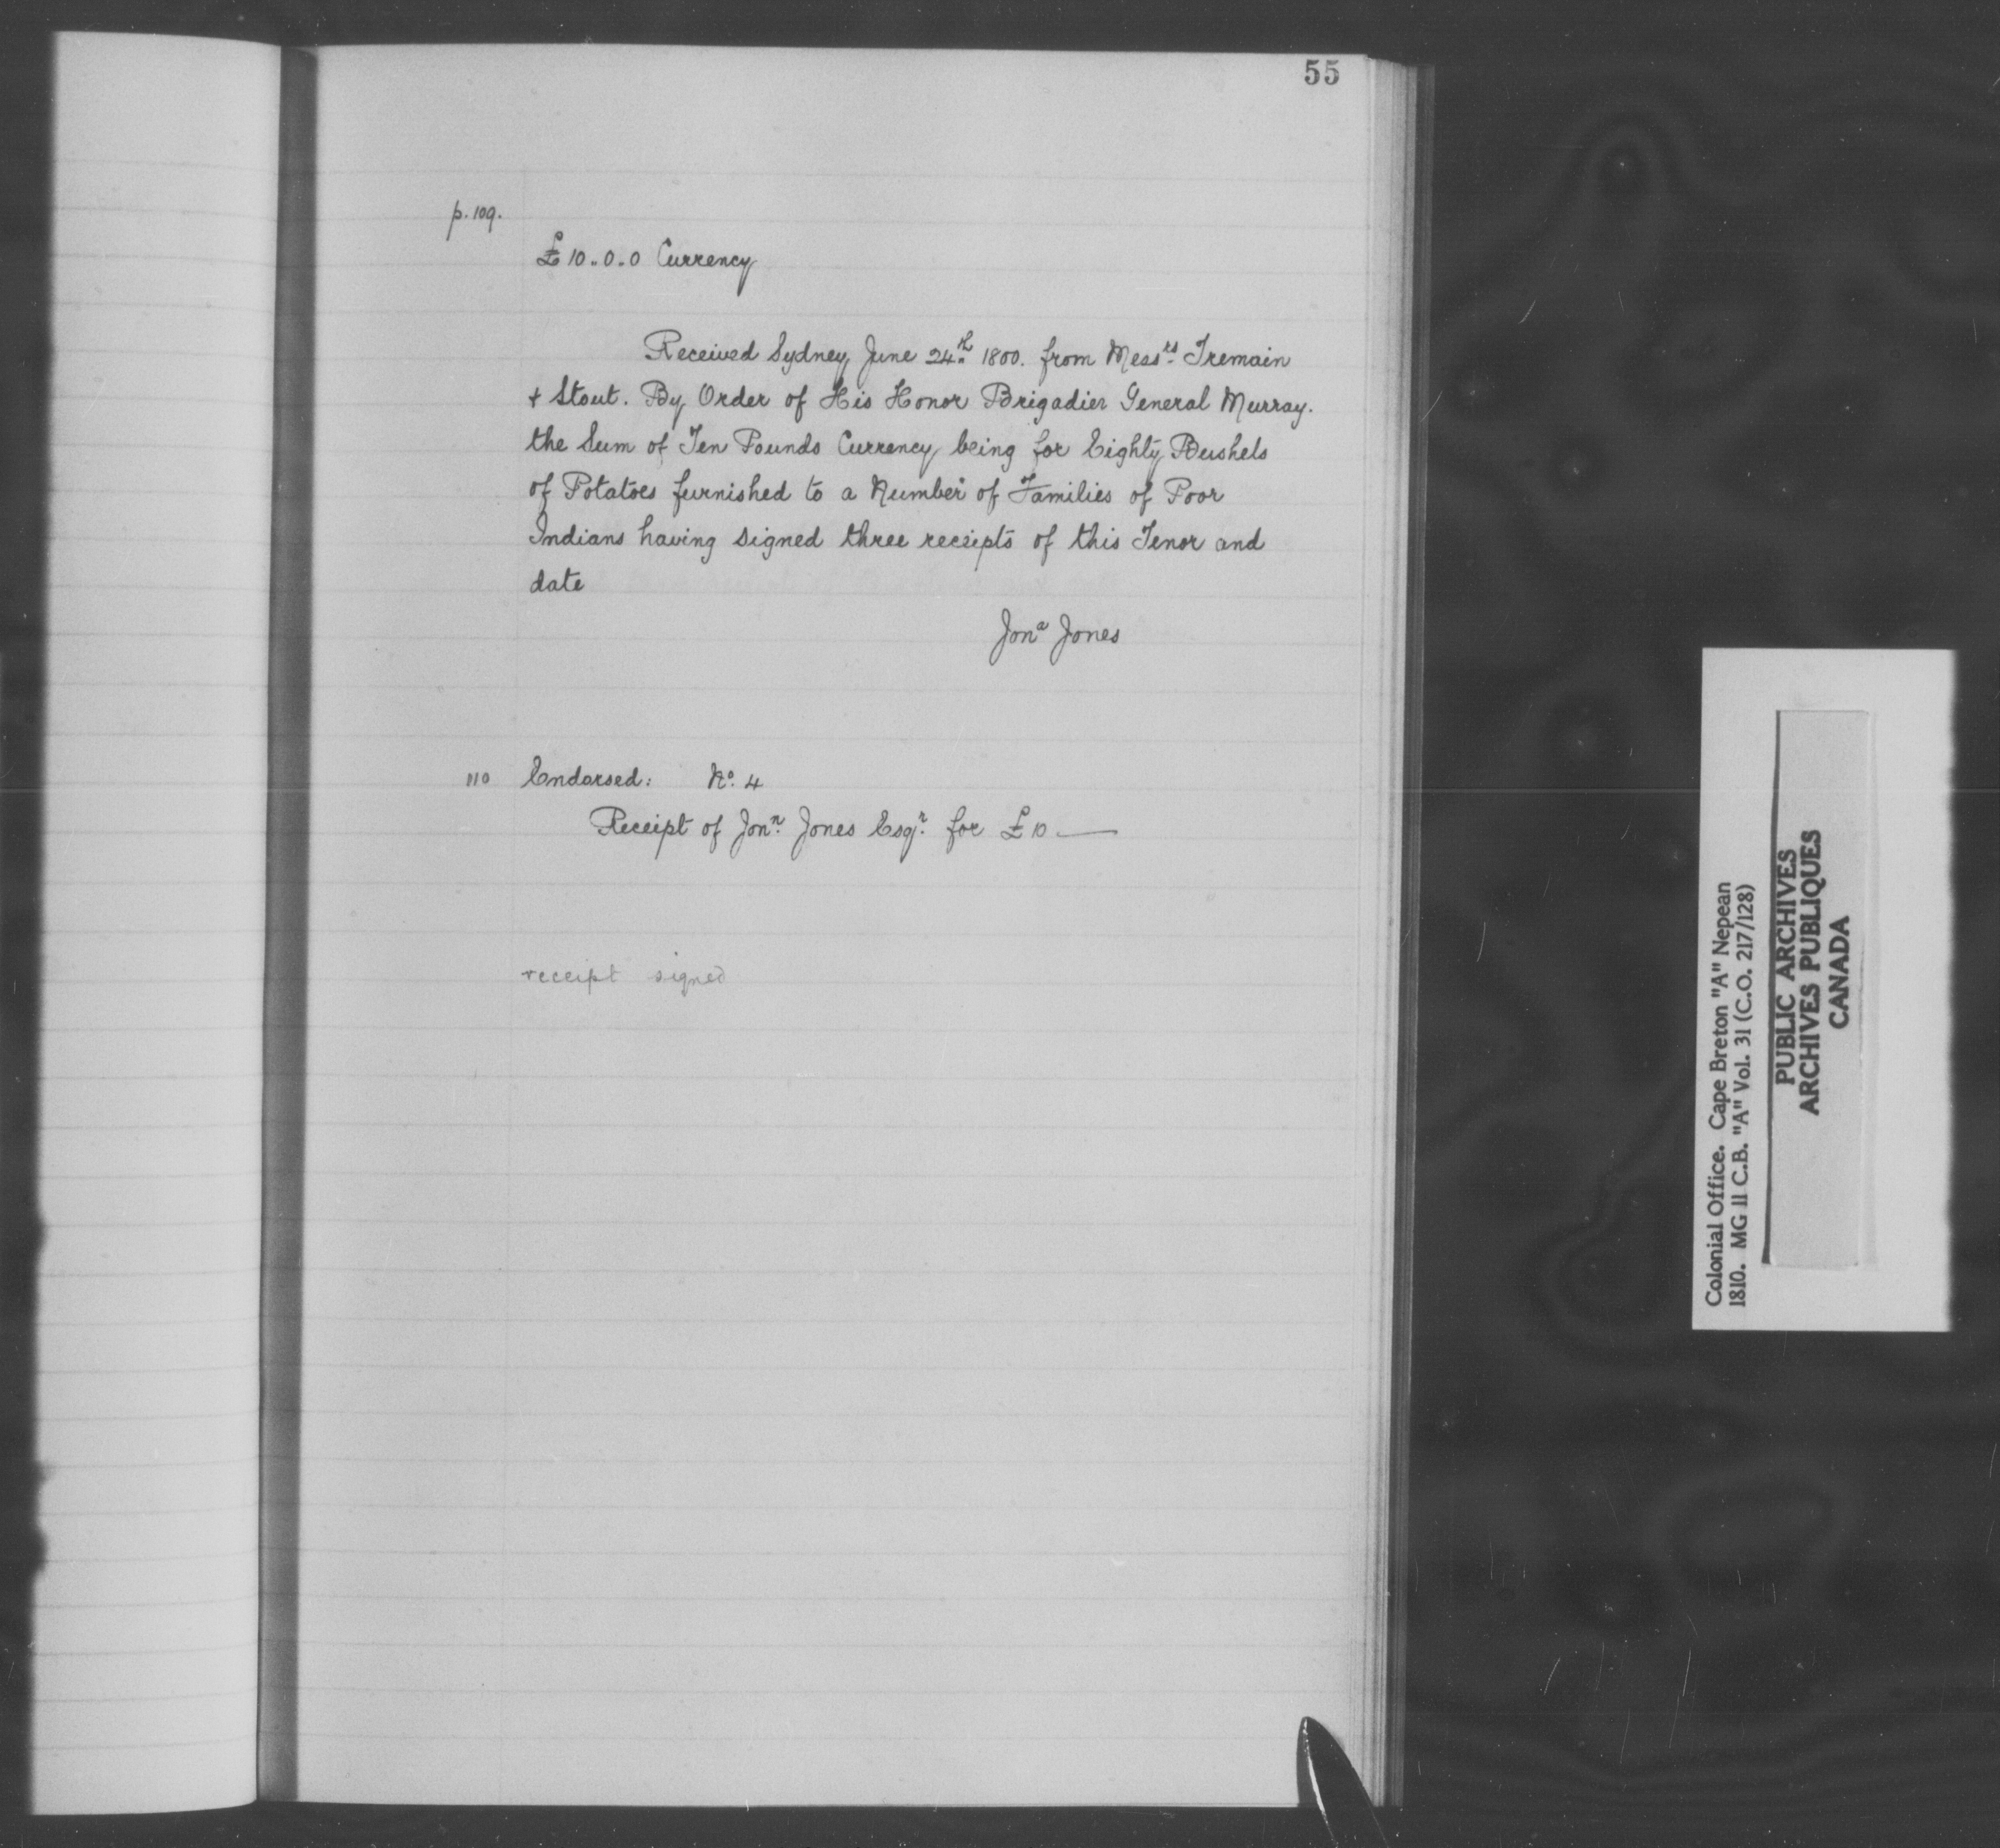 55
p. 109.
£10..0..0 Currency
Received Sydney June 24th 1800. from Messrs Tremain
+ Stout. By Order of His Honor Brigadier General Murray.
the Sum of Ten Pounds Currency being for Eighty Bushels
of Potatoes furnished to a Number of Families of Poor
Indians having signed three receipts of this Tenor and
date
Jona Jones
110 Endorsed: No. 4
Receipt of Jonn. Jones Esqr. for £10 —
receipt signed
Colonial Office. Cape Breton "A" Nepean
1810. MG 11 C.B. "A" Vol. 31 (C.O. 217/128)
PUBLIC ARCHIVES
ARCHIVES PUBLIQUES
CANADA